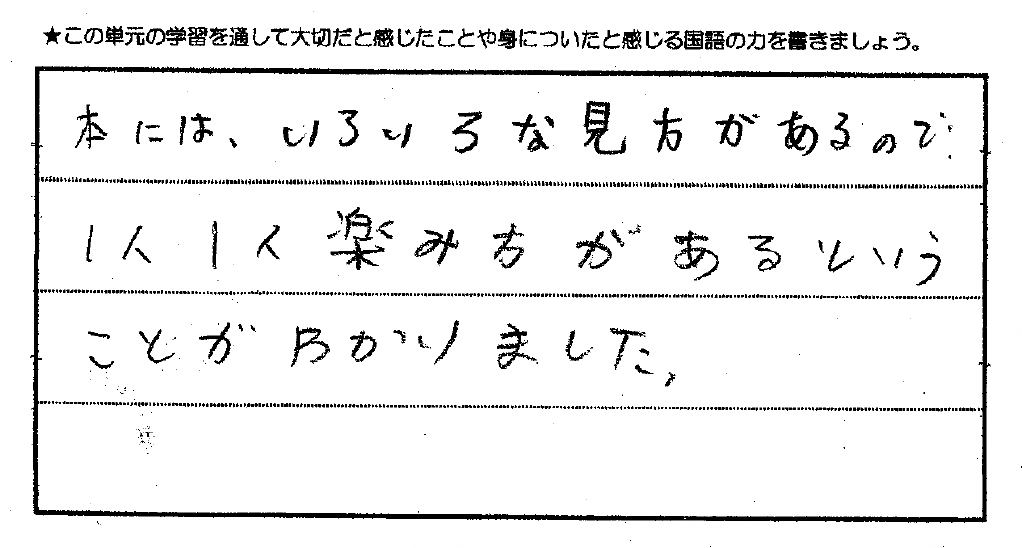 ★この単元の学習を通して大切だと感じたことや身についたと感じる国語の力を書きましょう。
本には、いろいろな見方があるので
1人1人楽み方があるという
ことが分かりました。